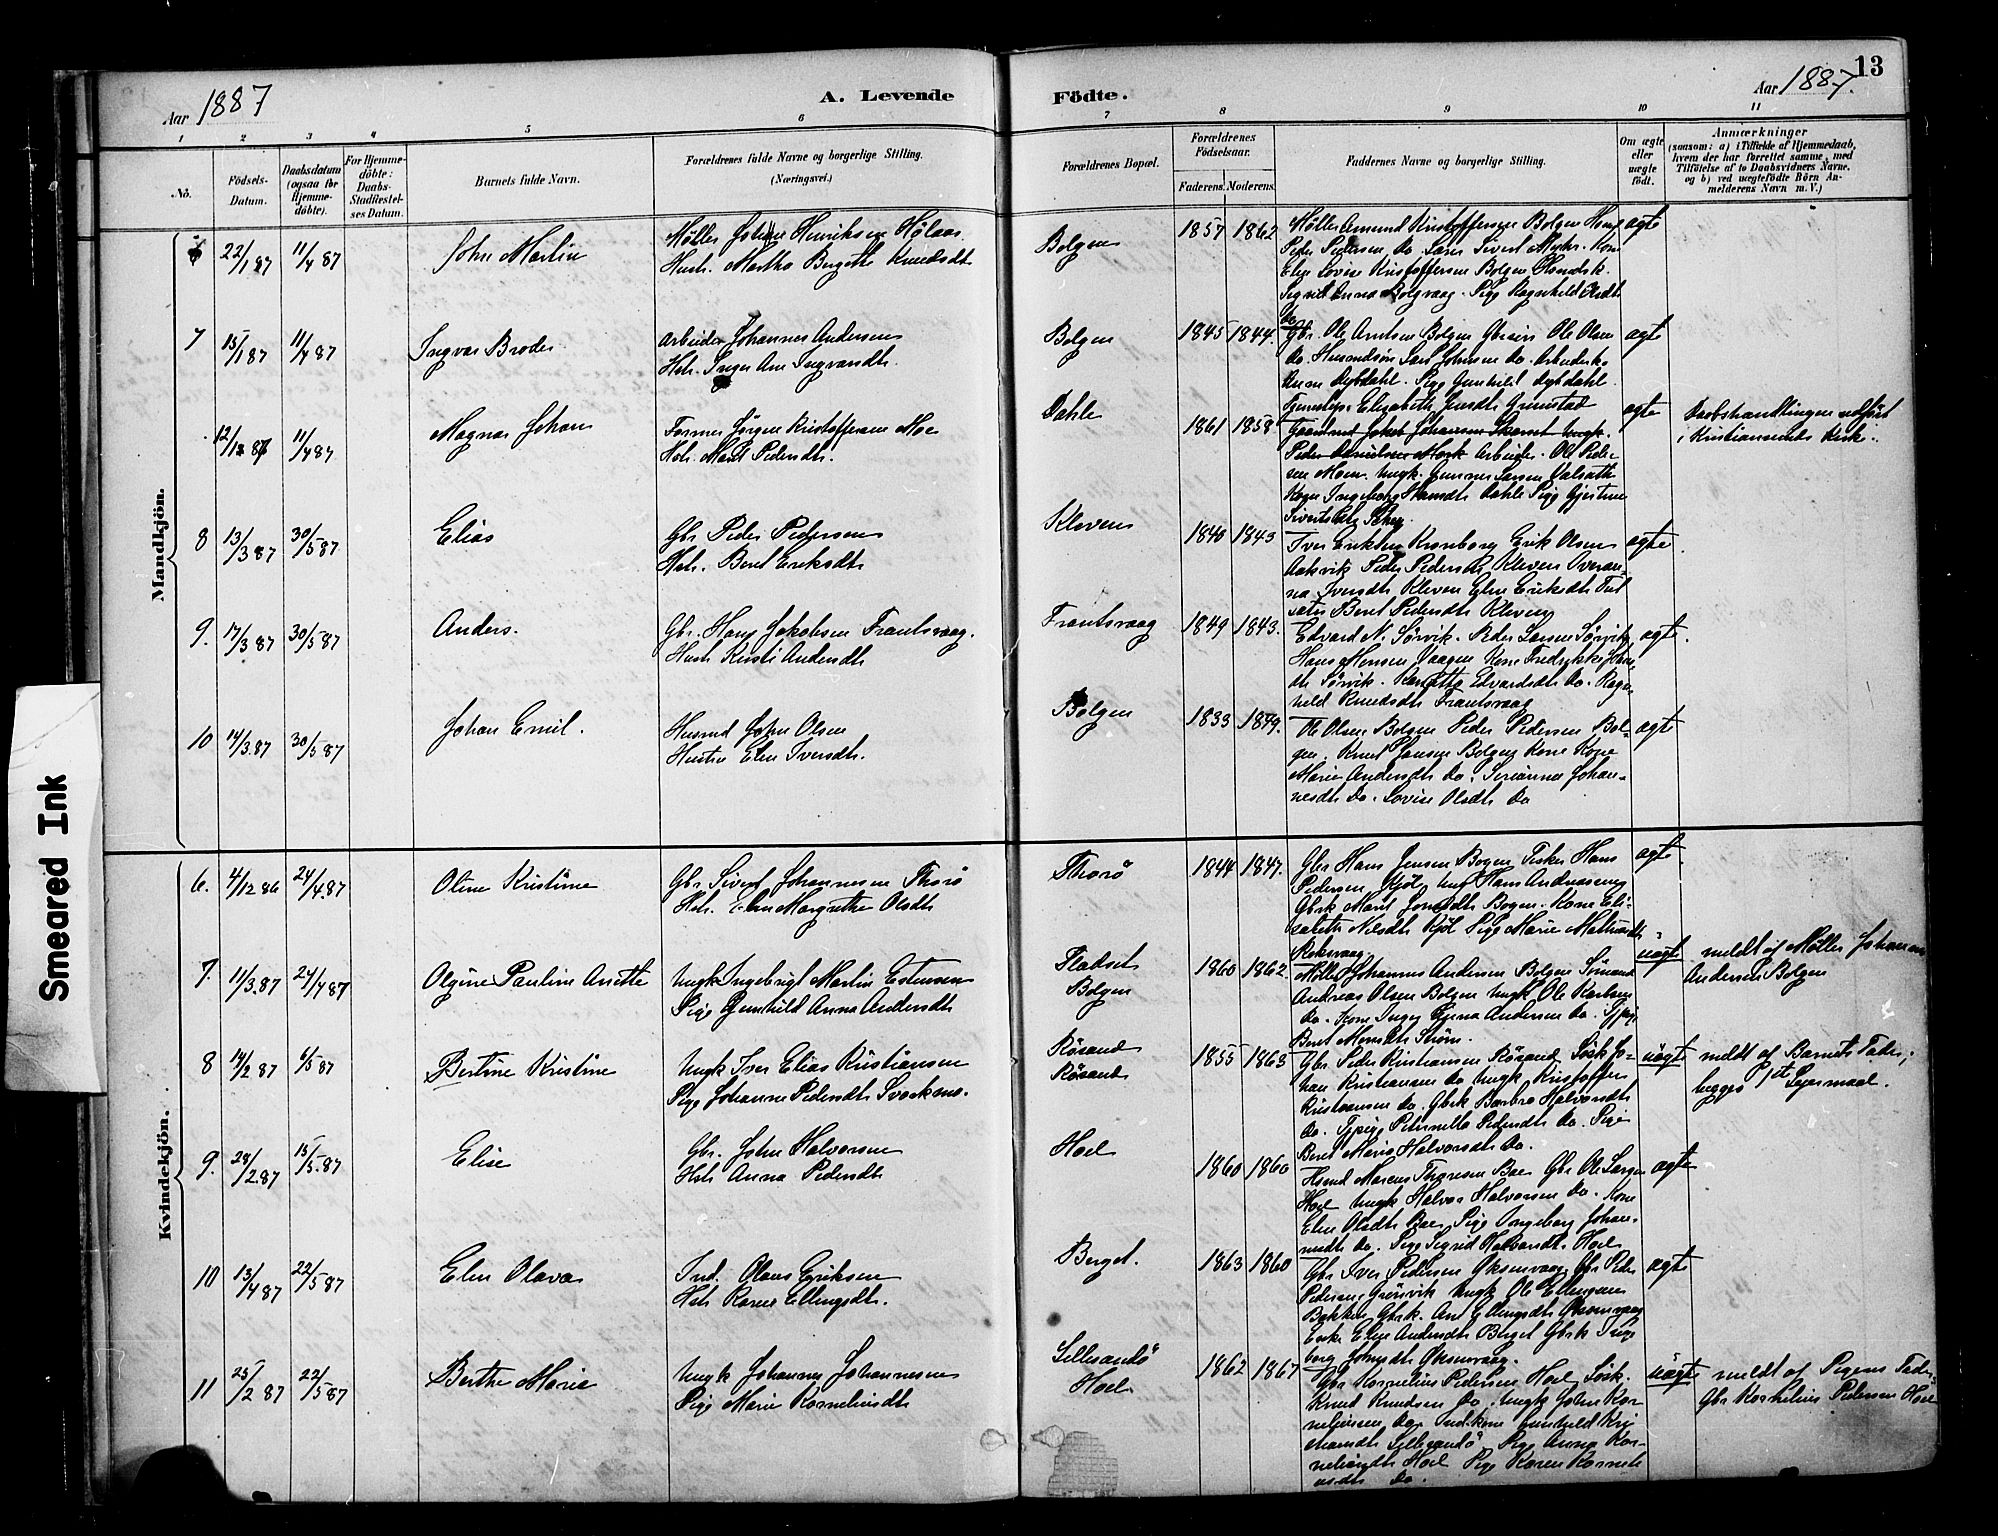 Smeared Ink
Aar 1887
A. Levende
Födte.
Aar 1887.
13
1 2 3 4 5 6 7 8 9 10 11
No.
Födsels-Datum.
Daabsdatum (ogsaa for Hjemmedöbte).
For Hjemmedöbte: Daabs-Stadfæstelses Datum.
Barnets fulde Navn.
Forældrenes fulde Navne og borgerlige Stilling. (Næringsvei.)
Forældrenes Bopæl.
Forældrenes Födselsaar.
Faderens. Moderens.
Faddernes Navne og borgerlige Stilling.
Om ægte eller uægte födt.
Anmærkninger
(saasom: a) i Tilfælde af Hjemmedaab, hvem der har forrettet samme, med Tilföielse af to Daabsvidners Navne, og b) ved uægtefödte Börn Anmelderens Navn m. V.)
Mandkjön.
22/1 87 11/4 87 John Martin
Møller Johan Henriksen
Hustr. Martha Bergitte Knudsdt
Bolgen 1857 1862
Møller Amund Kristoffersen Bolgen
Peder Pedersen Do
Elen Lovise Kristoffersen Bolgen
Sigrid Anna Bolgvaag. Pige Ragnhild
ægte
7 15/1 87 11/4 87 Ingvar Broder
Arbeider Johannes Andersen
Hstr. Inger Ane Ingvardt.
Bolgen 1845 1844
Gbr. Ole Arntsen Bolgen Ole Olsen
Do. Husmdsøn Lars Johnsen Do. Arbeidersk.
Anne Dybdahl. Pige Gunhild Dybdahl.
ægte
12/1 87 11/4 87 Magnar Johan
Former Jørgen Kristoffersen Moe
Hstr. Marit Pedersdt.
Dahle 1861 1858
Elisabeth Grimstad
Gaardmd Jakob Johansen Skaret Ungk.
Peder Danielsen Mork Arbeider. Ole Pedersen
Moen. Ungk. Gunner Larsen Dalsæth
Ingeborg Hansdt Dahle Pige Gjertine
ægte
Daabshandlingen udført
i Kristiansunds Kirke.
8 13/3 87 30/5 87 Elias
Gbr Peder Pedersen
Hstr. Beret Eriksdt
Kleven 1840 1843
Iver Eriksen Kronborg Erik Olsen
Aakvik Peder Pedersen Kleven
Iversdt Kleven Elen Eriksdt
Beret Pedersdt Kleven
ægte
9. 17/3 87 30/5 87 Anders.
Gbr. Hans Jakobsen Frantsvaag.
Hustr Kristi Andersdt
Frantsvaag 1849 1843.
Edvard N. Sørvik. Peder Larsen Sørvik
Hans Monsen Vaagen Kone Fredrikke
Sørvik. Edvardsdt Do. Ragnhild
Knudsdt Frantsvaag
ægte.
10 14/3.87 30/5 87 Johan Emil.
Husmd John Olsen
Hustru Elen Iversdt.
Bolgen 1833 1849.
Ole Olsen Bolgen Peder Pedersen Bolgen.
Knut Hansen Bolgen Kone
Marie Andersdt Do. Serianna Johannesdt
Do. Lovise Olsdt Do
ægte
Kvindekjön.
6. 4/12 86 24/4.87 Oline Kristine
Gbr Sivert Johannesen Thorø
Hstr. Elen Margrethe Olsdt
Thorø 1844 1847.
Gbr Hans Jensen Bogen Fisker Hans
Pedersen Kjøl Ungk Hans Andreasen
Gbrk Marit Jonsdt Bogen. Kone Elisabeth
Nilsdt Kjøl Pige Marie
ægte.
7. 11/3.87 24/4 87 Olgine Pauline Anette
Ungk Ingebrigt Martin Estensen
Pige Gunhild Anna Andersdt
Fladset
Bolgen
1860 1862.
Møller Johannes Andersen Bolgen Sømand
Andreas Olsen Bolgen Ungk Ole Karlsen
Do. Kone Inger Andersen Do.
Beret Monsdt
uægte
meldt af Møller Johannes
Andersen Bolgen
8 14/2 87 6/5 87 Bertine Kristine
Ungk Iver Elias Kristiansen
Pige Johanna Pedersdt Svorkmo.
Røsand
Røsand
1855 1863
Gbr Peder Kristiansen Røsand Johan
Kristiansen Do Ungk Kristoffer
Kristiansen Do. Gbrk Barbro Halvorsdt
Do. Tjpige Petternella Pedersdt Do. Pige
Beret Maria Halvorsdt Do.
uægte
meldt af Barnets Fader,
begges 1ste Leiermaal.
9. 28/2.87 15/5.87 Elise
Gbr. John Halvorsen
Hstr Anna Pedersdt
Hoel 1860 1860
Husmd Marcus Thoresen Bae Gbr Ole Larsen
Hoel Ungk Halvor Halvorsen Do. Kone
Elen Olsdt Bae, Pige Ingeborg
Do. Pige Sigrid Halvorsdt. Hoel
ægte
10 13/4 87 22/5 87 Elen Olava
Ind. Olaus Eriksen
Hstr Karen Ellingsdt.
Berget. 1863 1860
Gbr Iver Pedersen Øksenvaag Gbr Peder
Pedersen Grønvik Ungk Ole Ellingsen
Bakken Gbrk. Ane Ellingsdt Øksenvaag
Enke Elen Andersdt Berget Gbrk Ingeborg
Johnsdt Øksenvaag.
ægte
11 25/2 87 22/5 87 Berthe Marie
Ungk Johannes Johannesen
Pige Marie Korneliusdt
Lillesandø
Hoel
1862 1867
Gbr Kornelius Pedersen Hoel
Knut Knudsen Do. Ungk John Korneliussen
Do. Indkone Gunhild
Lillesandø, Pige Anna Korneliusdt
Hoel Pige Karen Korneliusdt
Do.
uægte
meldt af Pigens Fader
Gbr Kornelius Pedersen Hoel